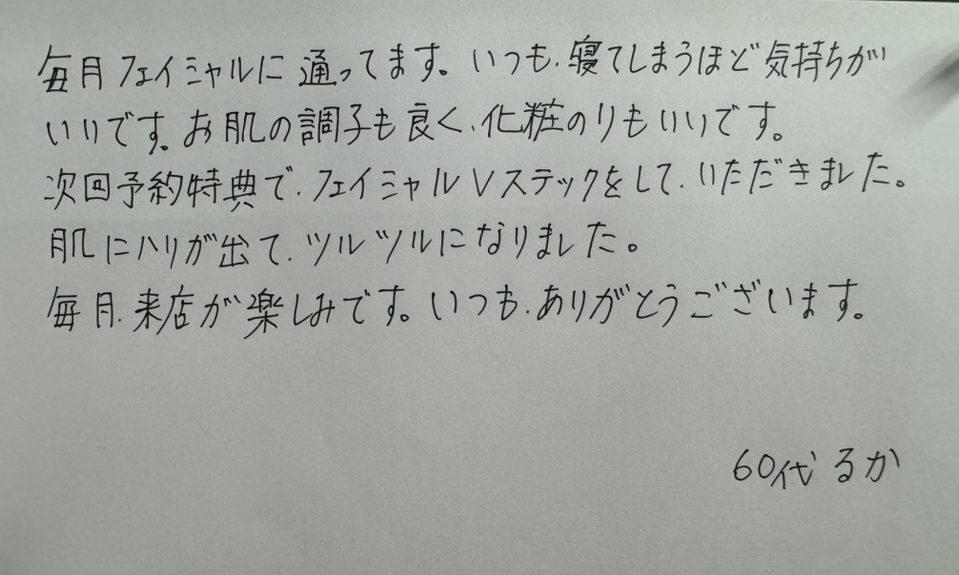 毎月フェイシャルに通ってます。いつも、寝てしまうほど気持ちが
いいです。お肌の調子も良く、化粧のりもいいです。
次回予約特典で、フェイシャルVステックをして、いただきました。
肌にハリが出て、ツルツルになりました。
毎月、来店が楽しみです。いつも、ありがとうございます。
60代 るか